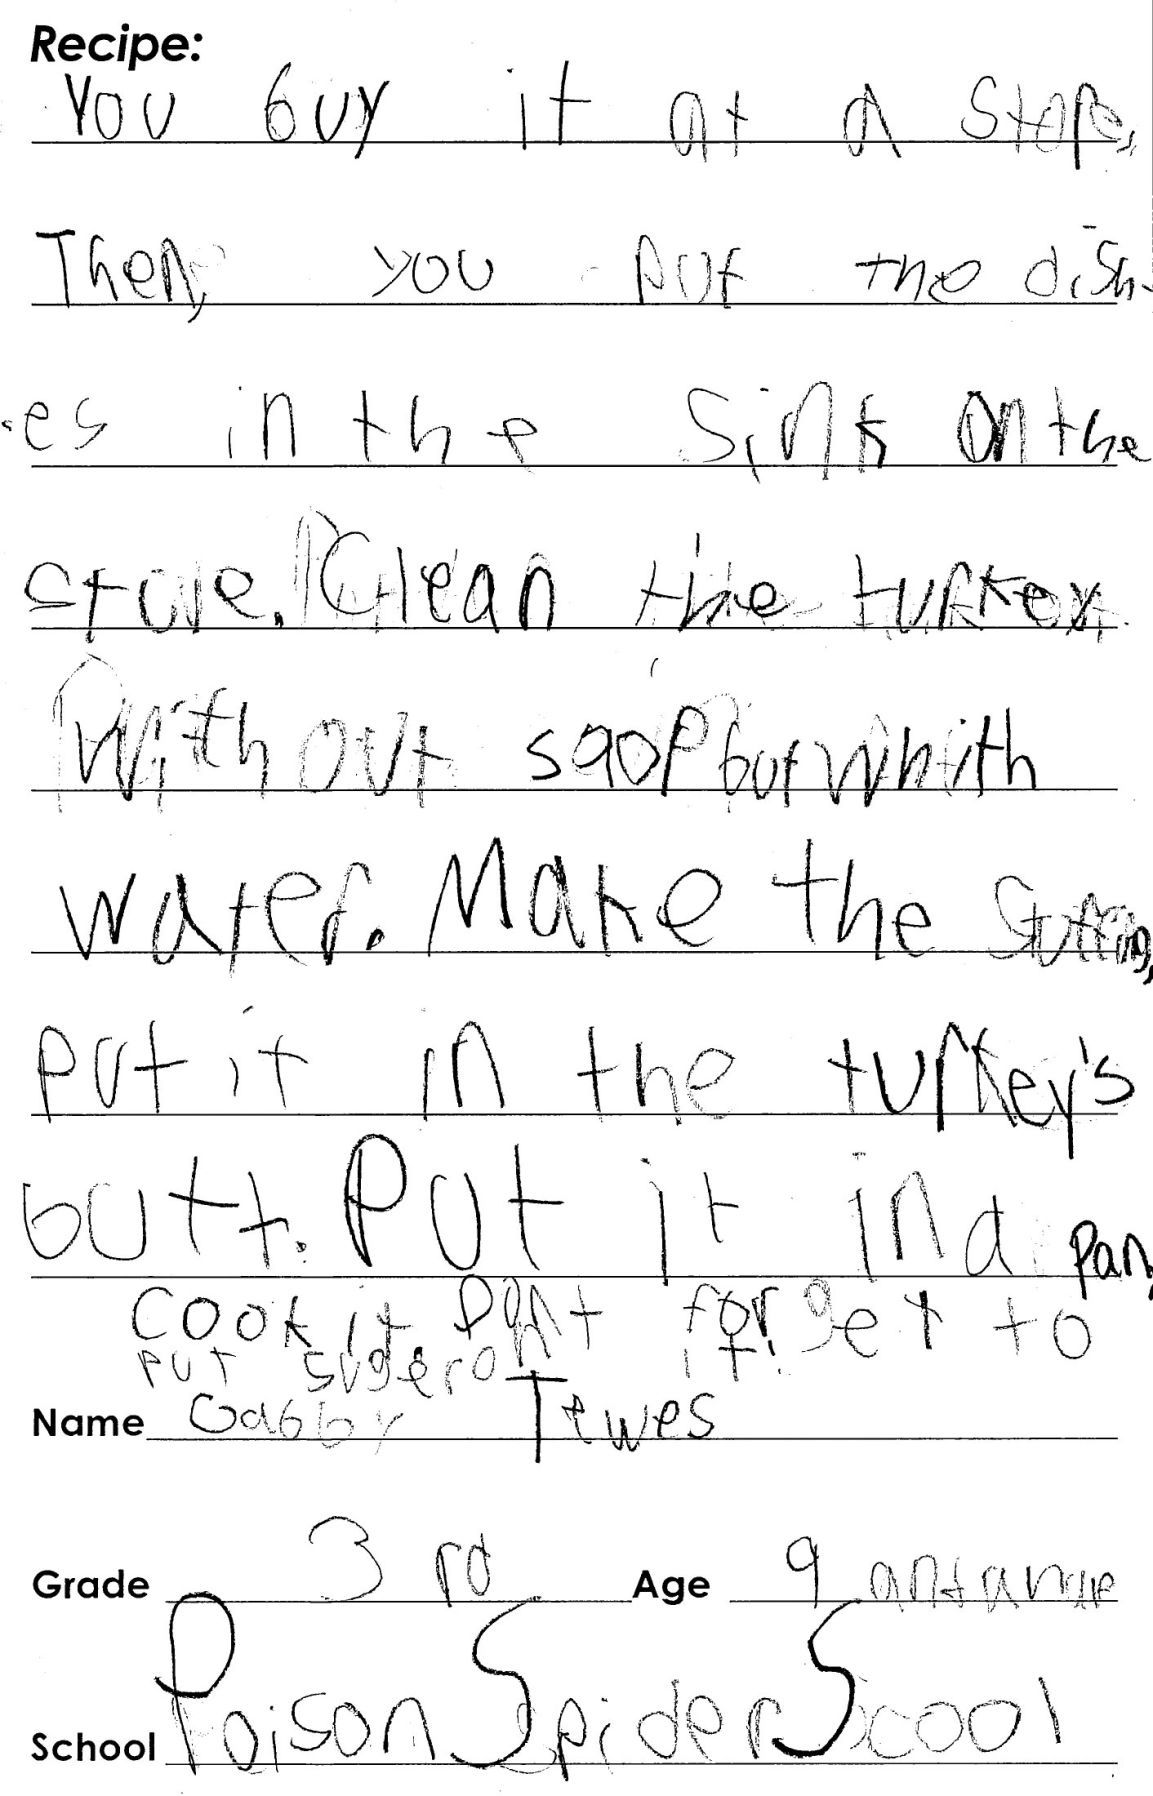 Recipe:
You buy it at a store,
Then, you put the dish-
-es in the sink on the
stove. Clean the turkey
without saop but whith
water. Make the stuffing,
put it in the turkey's
butt. Put it in a pan,
cook it. Don't forget to
put sugeron it!
Name Gabby Tewes
Grade 3rd Age 9
School Poison Spider Scool